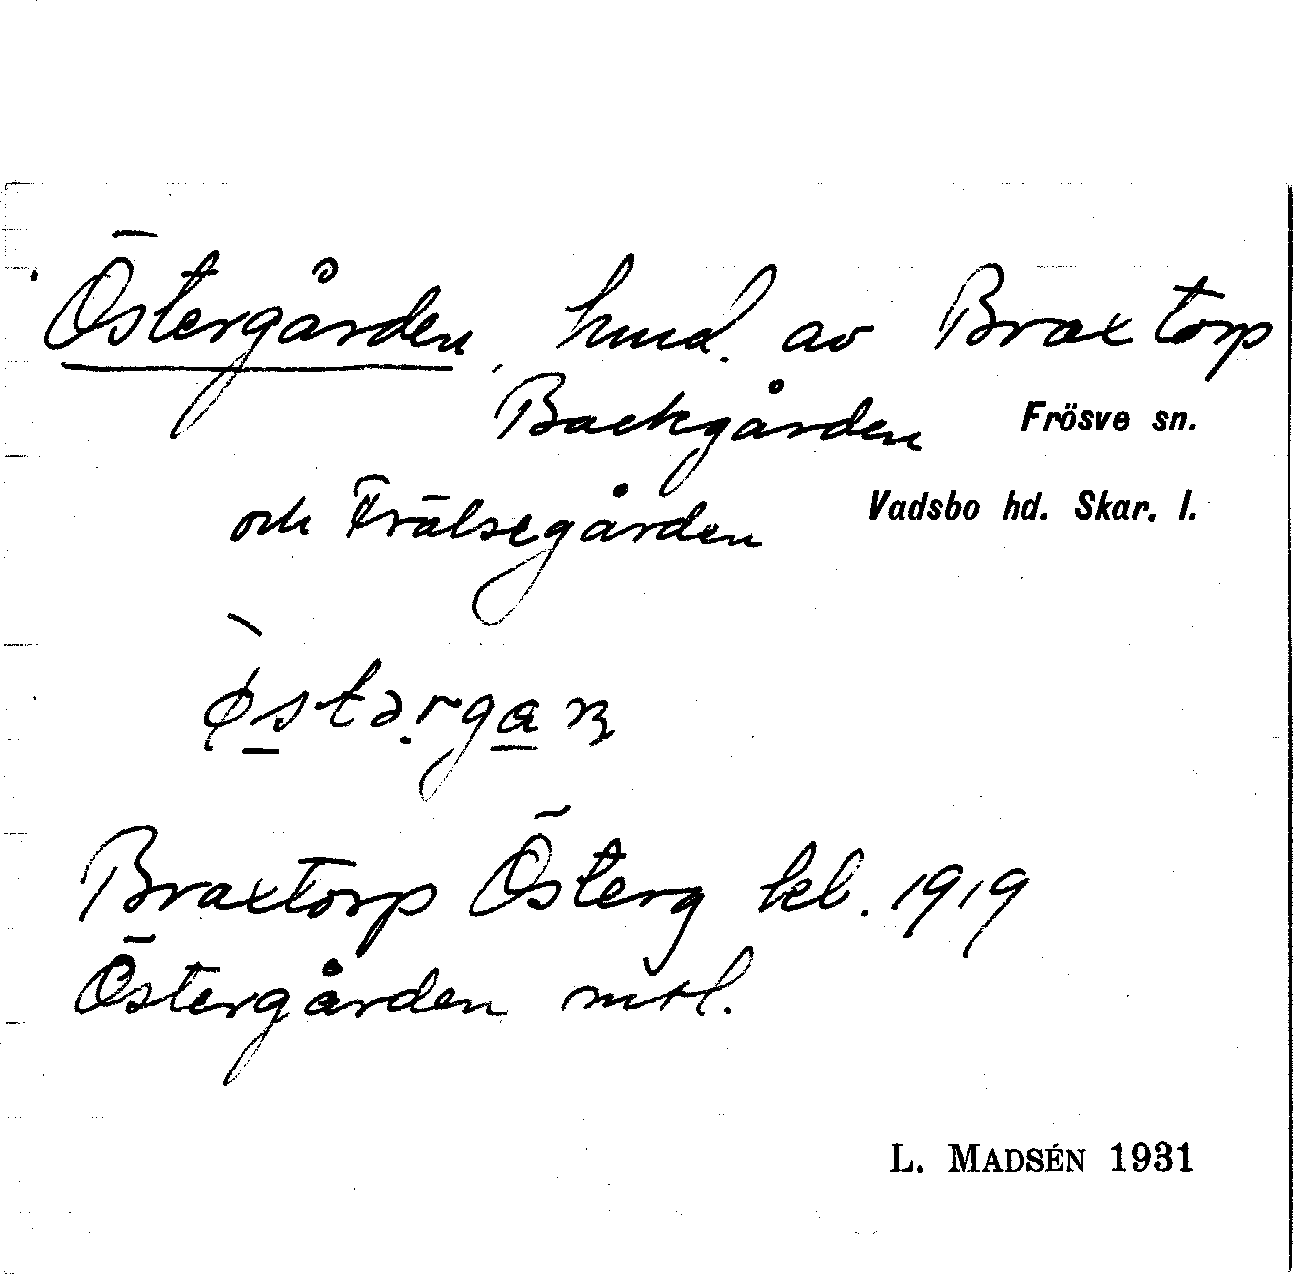 Östergården, hmd. av Braxtorp
Backgården Frösve sn.
och Frälsegården Vadsbo hd. Skar. l.
Braxtorp Österg kb. 1919
Östergården mtl.
L. MADSÉN 1931